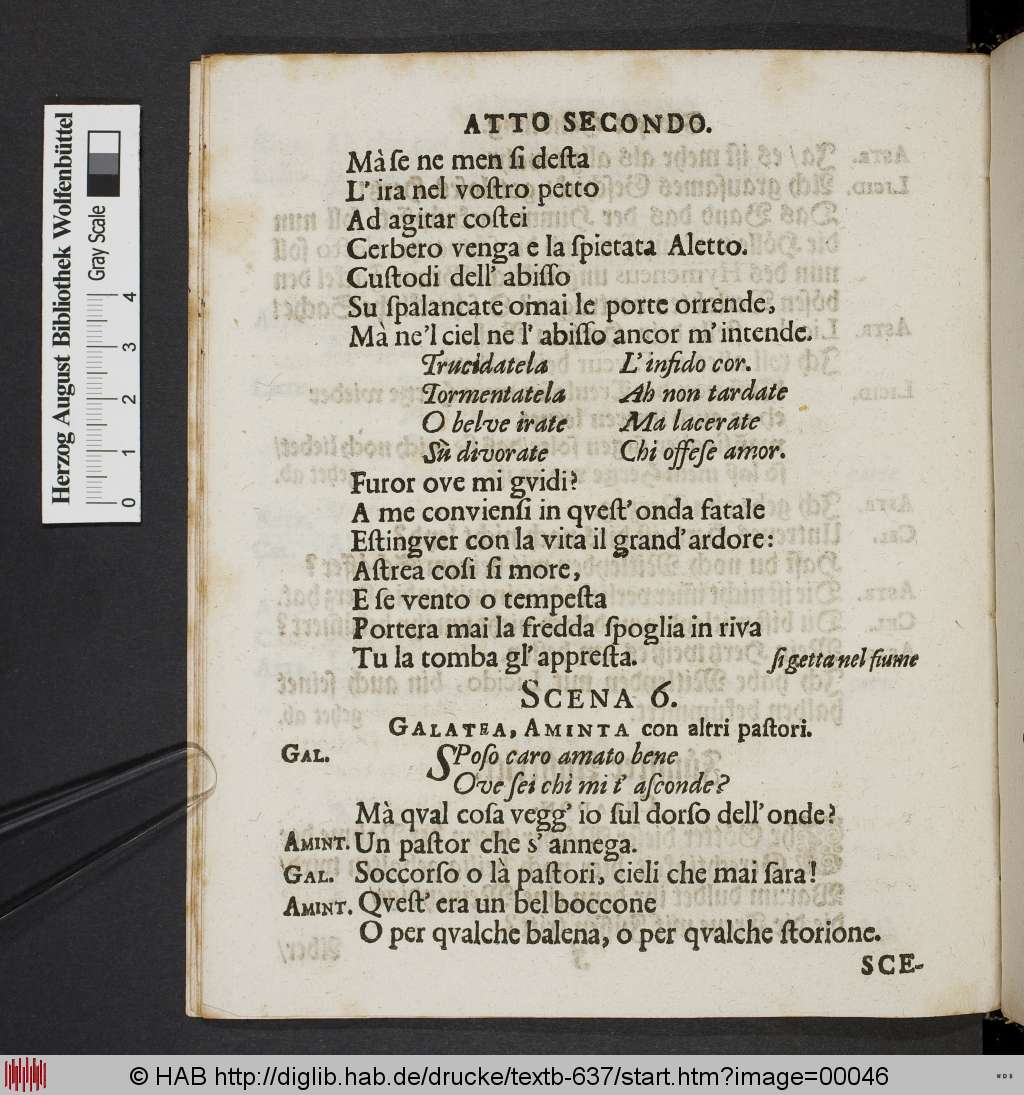 ATTO SECONDO.
Mà ſe ne men ſi deſta
L' ira nel voſtro petto
Ad agitar coſtei
Cerbero venga e la ſpietata Aletto.
Cuſtodi dell' abiſſo
Su ſpalancate omai le porte orrende,
Mà ne'l ciel ne l' abiſſo ancor m' intende.
Trucidatela L' infido cor.
Tormentatela Ah non tardate
O belve irate Ma lacerate
Sù divorate Chi offeſe amor.
Furor ove mi gvidi?
A me convienſi in qveſt' onda fatale
Eſtingver con la vita il grand' ardore:
Aſtrea coſi ſi more,
E ſe vento o tempeſta
Portera mai la fredda ſpoglia in riva
Tu la tomba gl' appreſta. ſi getta nel fiume
SCENA 6.
GALATEA, AMINTA con altri paſtori.
GAL. SPoſo caro amato bene
Ove ſei chi mi t' aſconde?
Mà qval coſa vegg' io ſul dorſo dell' onde?
AMINT. Un paſtor che s' annega.
GAL. Soccorſo o là paſtori, cieli che mai ſara!
AMINT. Qveſt' era un bel boccone
O per qvalche balena, o per qvalche ſtorione.
SCE-
Herzog August Bibliothek Wolfenbüttel
Gray Scale
0 1 2 3 4
© HAB http://diglib.hab.de/drucke/textb-637/start.htm?image=00046